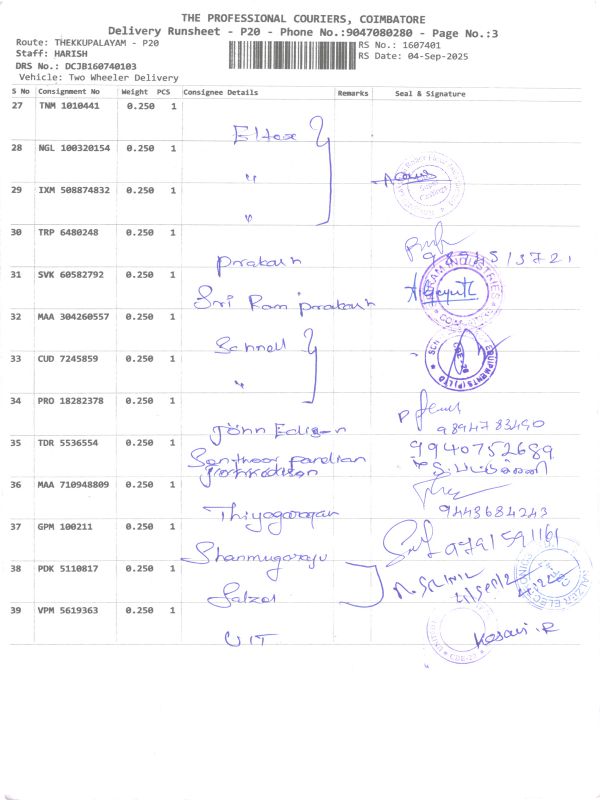 THE PROFESSIONAL COURIERS, COIMBATORE
Delivery Runsheet - P20 - Phone No.:9047080280 - Page No.:3
Route: THEKKUPALAYAM - P20
Staff: HARISH
DRS No.: DCJB160740103
Vehicle: Two Wheeler Delivery
RS No.: 1607401
RS Date: 04-Sep-2025
S No Consignment No Weight PCS Consignee Details Remarks Seal & Signature
27 TNM 1010441 0.250 1
28 NGL 100320154 0.250 1
"
29 IXM 508874832 0.250 1
"
30 TRP 6480248 0.250 1
Prakash
31 SVK 60582792 0.250 1
Sri Ram Prakash
32 MAA 304260557 0.250 1
Schnell
33 CUD 7245859 0.250 1
"
34 PRO 18282378 0.250 1
John Edison 9894783490
35 TDR 5536554 0.250 1
Senthoor Pandian 9940752689
36 MAA 710948809 0.250 1
Thiyagarajan 9443684243
37 GPM 100211 0.250 1
Shanmugaraju 9791591161
38 PDK 5110817 0.250 1
Salzer
39 VPM 5619363 0.250 1
UIT Kesavi.R